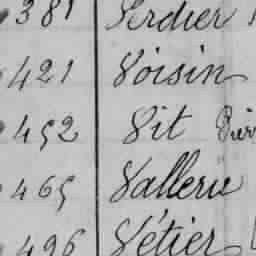 381 Verdier
421 Voisin
452 Vit
465 Vallerie
496 Vétier